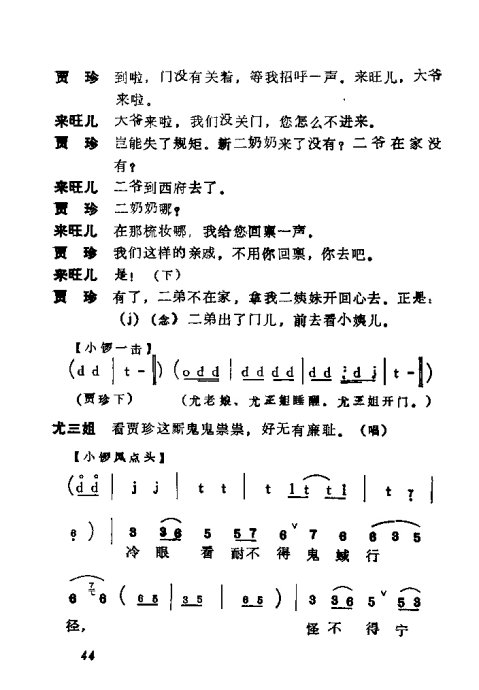 贾  珍  到啦，门没有关着，等我招呼一声。来旺儿，大爷
来啦。
来旺儿  大爷来啦，我们没关门，您怎么不进来。
贾  珍  岂能失了规矩。新二奶奶来了没有？二爷在家没
有？
来旺儿  二爷到西府去了。
贾  珍  二奶奶哪？
来旺儿  在那梳妆哪，我给您回禀一声。
贾  珍  我们这样的亲戚，不用你回禀，你去吧。
来旺儿  是！（下）
贾  珍  有了，二弟不在家，拿我二姨妹开回心去。正是：
（j）（念）二弟出了门儿，前去看小姨儿。
【小锣一击】
(d d | t - ‖) (o d d | d d d d | d d d d j | t - ‖)
（贾珍下）  （尤老娘、尤三姐睡醒。尤三姐开门。）
尤三姐  看贾珍这厮鬼鬼祟祟，好无有廉耻。（唱）
【小锣凤点头】
(d d | j j | t t | t 1t t1 | t ? |
6 ) | 3 3 6 5 5 7 6 ∨ 7 6 6 3 5
冷 眼 看 耐不 得 鬼 蜮 行
6 7 6 ( 6 5 | 3 5 | 6 5 ) | 3 3 6 5 ∨ 5 3
径， 怪 不 得 宁
44